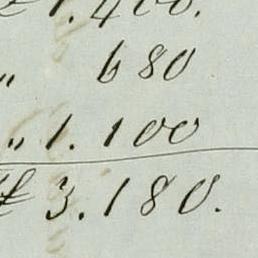 1.400.
„ 680
„ 1.100
ƒ 3.180.